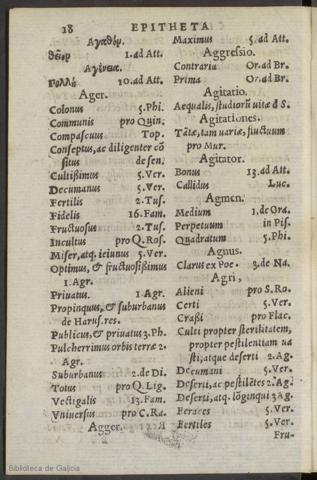 18 EPITHETA
Αγαθόν.
θεῖον 1. ad Att.
Ager.
Colonus 5. Phi.
Communis pro Quin.
Compascuus Top.
Conseptus, ac diligenter cõ
situs de sen.
Cultißimus 5. Ver.
Decumanus 5. Ver.
Fertilis 2. Tus.
Fidelis 16. Fam.
Fructuosus 2. Tus.
Incultus pro Q. Ros.
Miser, atq; ieiunus 5. Ver.
Optimus, & fructuosißimus
1. Agr.
Priuatus 1. Agr.
Propinquus, & suburbanus
de Harus. res.
Publicus, & priuatus 3. Ph.
Pulcherrimus orbis terræ 2.
Agr.
Suburbanus 2. de Di.
Totus pro Q. Lig.
Vectigalis 13. Fam.
Vniuersus pro C. Ra.
Agger.
Maximus 5. ad Att.
Aggressio.
Contraria Or. ad Br.
Prima Or. ad Br.
Agitatio.
Aequalis, studiorũ uitæ d S.
Agitationes.
Tãtæ, tam uariæ, fluctuum
pro Mur.
Agitator.
Bonus 13. ad Att.
Callidus Luc.
Agmen.
Medium 1. de Ora.
Perpetuum in Pis.
Quadratum 5. Phi.
Agnus.
Clarus ex Poe. 3. de Na.
Agri,
Alieni pro S. Ro.
Certi 5. Ver.
Craßi pro Flac.
Culti propter sterilitatem,
propter pestilentiam ua
sti, atque deserti 2. Ag.
Decumani 5. Ver.
Deserti, ac pestilẽtes 2. Ag.
Deserti, atq; lõginqui 3 Ag.
Feraces 5. Ver.
Fertiles 5. Ver.
Fru-
Biblioteca de Galicia